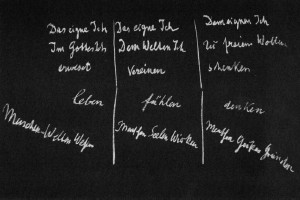 Das eigne Ich
Im Gottes Ich
erweset
leben
Menschen-Welten Wesen
Das eigne Ich
Dem Welten Ich
Vereinen
fühlen
Menschen Seelen Wirken
Dem eignen Ich
Zu freiem Wollen
schenken
denken
Menschen Geistes Gründen